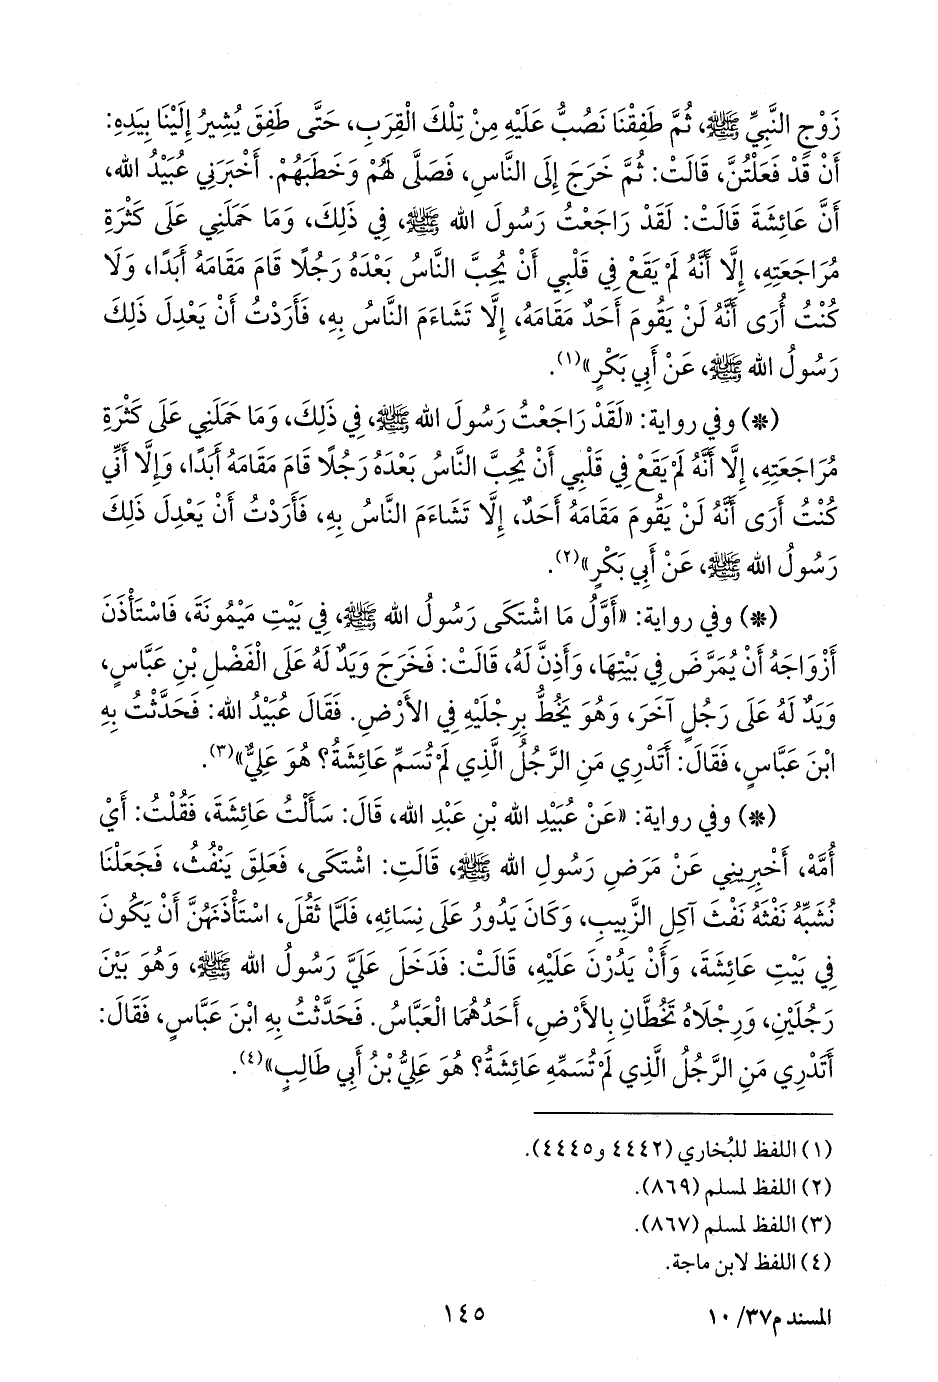 زَوْجِ النَّبِيِّ ﷺ، ثُمَّ طَفِقْنَا نَصُبُّ عَلَيْهِ مِنْ تِلْكَ الْقِرَبِ، حَتَّى طَفِقَ يُشِيرُ إِلَيْنَا بِيَدِهِ:
أَنْ قَدْ فَعَلْتُنَّ، قَالَتْ: ثُمَّ خَرَجَ إِلَى النَّاسِ، فَصَلَّى لَهُمْ وَخَطَبَهُمْ. أَخْبَرَنِي عُبَيْدُ الله،
أَنَّ عَائِشَةَ قَالَتْ: لَقَدْ رَاجَعْتُ رَسُولَ الله ﷺ، فِي ذَلِكَ، وَمَا حَمَلَنِي عَلَى كَثْرَةِ
مُرَاجَعَتِهِ، إِلَّا أَنَّهُ لَمْ يَقَعْ فِي قَلْبِي أَنْ يُحِبَّ النَّاسُ بَعْدَهُ رَجُلًا قَامَ مَقَامَهُ أَبَدًا، وَلَا
كُنْتُ أُرَى أَنَّهُ لَنْ يَقُومَ أَحَدٌ مَقَامَهُ، إِلَّا تَشَاءَمَ النَّاسُ بِهِ، فَأَرَدْتُ أَنْ يَعْدِلَ ذَلِكَ
رَسُولُ الله ﷺ، عَنْ أَبِي بَكْرٍ»(١).
(*) وفي رواية: «لَقَدْ رَاجَعْتُ رَسُولَ الله ﷺ، فِي ذَلِكَ، وَمَا حَمَلَنِي عَلَى كَثْرَةِ
مُرَاجَعَتِهِ، إِلَّا أَنَّهُ لَمْ يَقَعْ فِي قَلْبِي أَنْ يُحِبَّ النَّاسُ بَعْدَهُ رَجُلًا قَامَ مَقَامَهُ أَبَدًا، وَإِلَّا أَنِّي
كُنْتُ أَرَى أَنَّهُ لَنْ يَقُومَ مَقَامَهُ أَحَدٌ، إِلَّا تَشَاءَمَ النَّاسُ بِهِ، فَأَرَدْتُ أَنْ يَعْدِلَ ذَلِكَ
رَسُولُ الله ﷺ، عَنْ أَبِي بَكْرٍ»(٢).
(*) وفي رواية: «أَوَّلُ مَا اشْتَكَى رَسُولُ الله ﷺ، فِي بَيْتِ مَيْمُونَةَ، فَاسْتَأْذَنَ
أَزْوَاجَهُ أَنْ يُمَرَّضَ فِي بَيْتِهَا، وَأَذِنَّ لَهُ، قَالَتْ: فَخَرَجَ وَيَدٌ لَهُ عَلَى الْفَضْلِ بْنِ عَبَّاسٍ،
وَيَدٌ لَهُ عَلَى رَجُلٍ آخَرَ، وَهُوَ يَخُطُّ بِرِجْلَيْهِ فِي الأَرْضِ. فَقَالَ عُبَيْدُ الله: فَحَدَّثْتُ بِهِ
ابْنَ عَبَّاسٍ، فَقَالَ: أَتَدْرِي مَنِ الرَّجُلُ الَّذِي لَمْ تُسَمِّ عَائِشَةُ؟ هُوَ عَلِيٌّ»(٣).
(*) وفي رواية: «عَنْ عُبَيْدِ الله بْنِ عَبْدِ الله، قَالَ: سَأَلْتُ عَائِشَةَ، فَقُلْتُ: أَيْ
أُمَّهْ، أَخْبِرِينِي عَنْ مَرَضِ رَسُولِ الله ﷺ، قَالَتِ: اشْتَكَى، فَعَلِقَ يَنْفُثُ، فَجَعَلْنَا
نُشَبِّهُ نَفْثَهُ نَفْثَ آكِلِ الزَّبِيبِ، وَكَانَ يَدُورُ عَلَى نِسَائِهِ، فَلَمَّا ثَقُلَ، اسْتَأْذَنَهُنَّ أَنْ يَكُونَ
فِي بَيْتِ عَائِشَةَ، وَأَنْ يَدُرْنَ عَلَيْهِ، قَالَتْ: فَدَخَلَ عَلَيَّ رَسُولُ الله ﷺ، وَهُوَ بَيْنَ
رَجُلَيْنِ، وَرِجْلَاهُ تَخُطَّانِ بِالأَرْضِ، أَحَدُهُمَا الْعَبَّاسُ. فَحَدَّثْتُ بِهِ ابْنَ عَبَّاسٍ، فَقَالَ:
أَتَدْرِي مَنِ الرَّجُلُ الَّذِي لَمْ تُسَمِّهِ عَائِشَةُ؟ هُوَ عَلِيُّ بْنُ أَبِي طَالِبٍ»(٤).
(١) اللفظ للبُخاري (٤٤٤٢ و٤٤٤٥).
(٢) اللفظ لمسلم (٨٦٩).
(٣) اللفظ لمسلم (٨٦٧).
(٤) اللفظ لابن ماجة.
المسند م٣٧/ ١٠
١٤٥